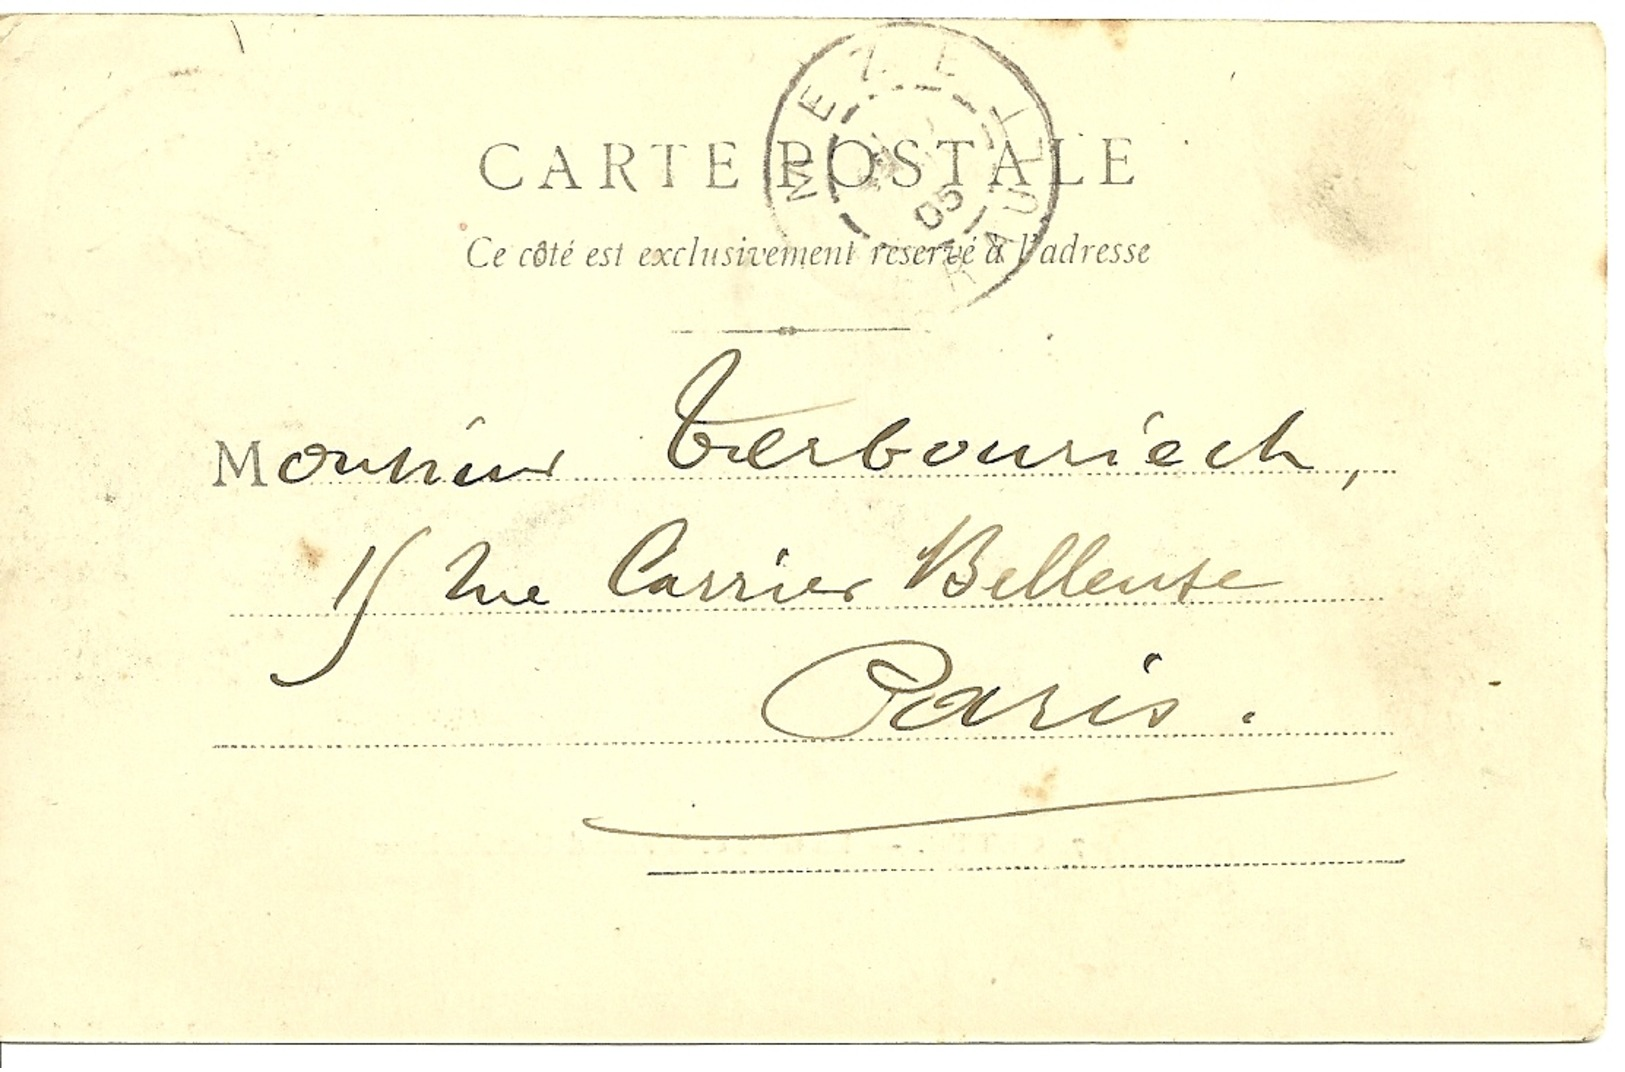 CARTE POSTALE
Ce côté est exclusivement réservé à l'adresse
MEZE
HERAULT
05
Monsieur Terbouriech,
15 rue Carrier Belleuse
Paris.